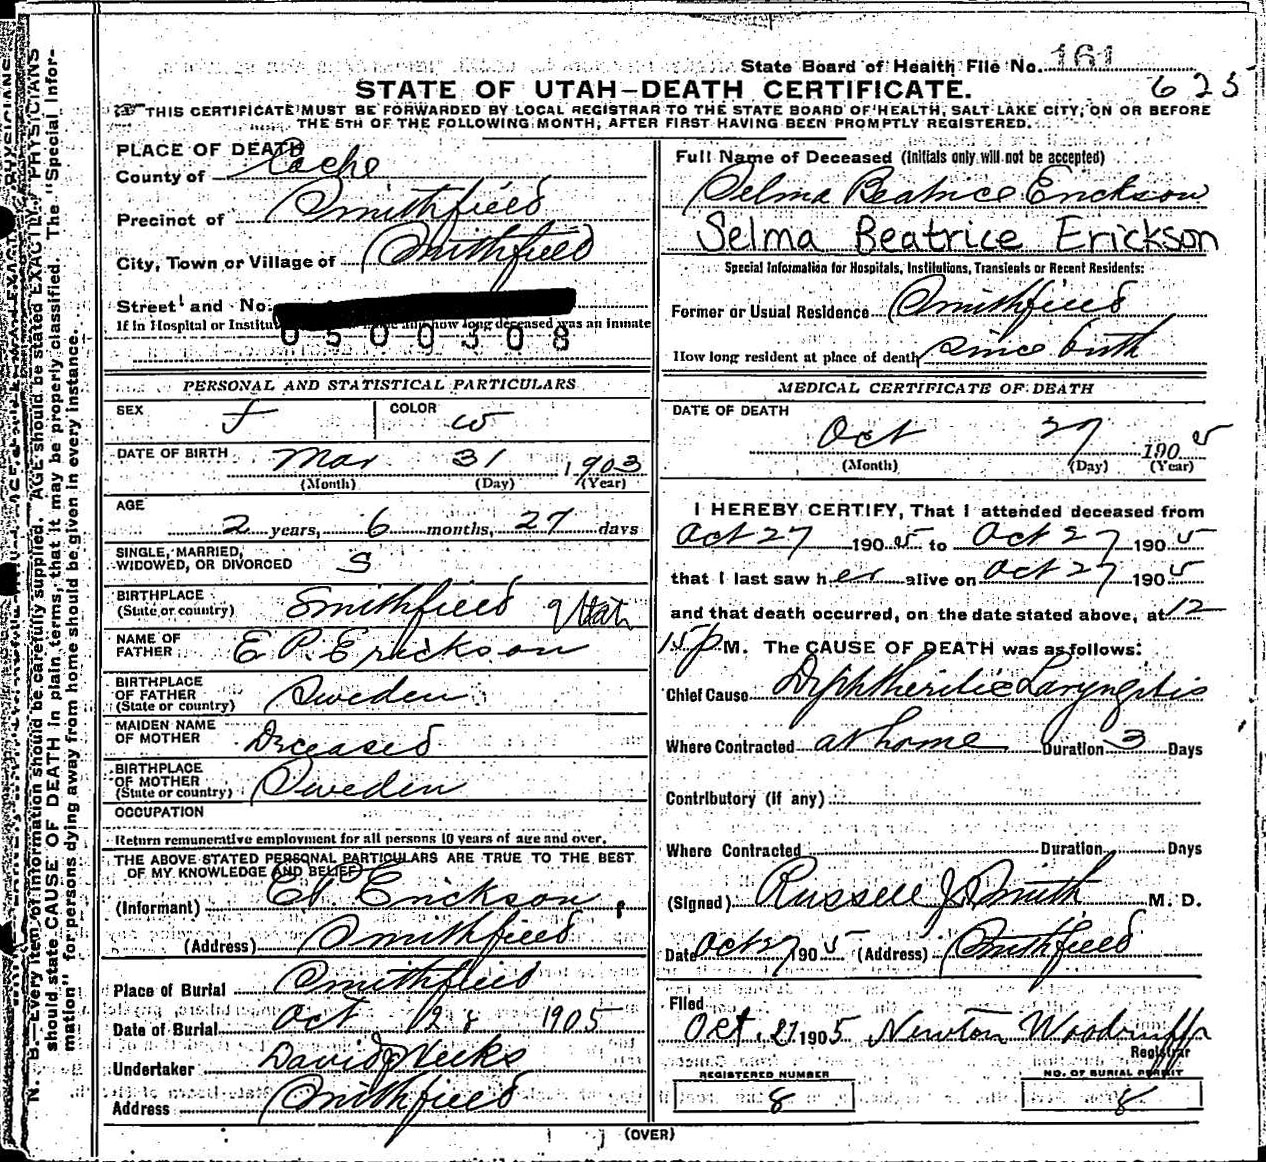 State Board of Health File No. 161
625
STATE OF UTAH—DEATH CERTIFICATE.
THIS CERTIFICATE MUST BE FORWARDED BY LOCAL REGISTRAR TO THE STATE BOARD OF HEALTH, SALT LAKE CITY, ON OR BEFORE
THE 5TH OF THE FOLLOWING MONTH, AFTER FIRST HAVING BEEN PROMPTLY REGISTERED.
PLACE OF DEATH
County of Cache
Precinct of Smithfield
City, Town or Village of Smithfield
Street and No.
If in Hospital or Institu how long deceased was an inmate
0500308
PERSONAL AND STATISTICAL PARTICULARS
SEX f COLOR w
DATE OF BIRTH Mar 31 1903
(Month) (Day) (Year)
AGE
2 years, 6 months, 27 days
SINGLE, MARRIED,
WIDOWED, OR DIVORCED S
BIRTHPLACE
(State or country) Smithfield Utah
NAME OF
FATHER E P. Erickson
BIRTHPLACE
OF FATHER
(State or country) Sweden
MAIDEN NAME
OF MOTHER Deceased
BIRTHPLACE
OF MOTHER
(State or country) Sweden
OCCUPATION
Return remunerative employment for all persons 10 years of age and over.
THE ABOVE STATED PERSONAL PARTICULARS ARE TRUE TO THE BEST
OF MY KNOWLEDGE AND BELIEF
(Informant) Erickson
(Address) Smithfield
Place of Burial Smithfield
Date of Burial Oct 28 1905
Undertaker David J Weeks
Address Smithfield
Full Name of Deceased (Initials only will not be accepted)
Selma Beatrice Erickson
Selma Beatrice Erickson
Special Information for Hospitals, Institutions, Transients or Recent Residents:
Former or Usual Residence Smithfield
How long resident at place of death since birth
MEDICAL CERTIFICATE OF DEATH
DATE OF DEATH
Oct 27 1905
(Month) (Day) (Year)
I HEREBY CERTIFY, That I attended deceased from
Oct 27 1905 to Oct 27 1905
that I last saw her alive on Oct 27 1905
and that death occurred, on the date stated above, at 12
15 p M. The CAUSE OF DEATH was as follows:
Chief Cause Diphtheritic Laryngitis
Where Contracted at home Duration 3 Days
Contributory (if any)
Where Contracted Duration Days
(Signed) Russell J Smith M. D.
Date Oct 27 1905 (Address) Smithfield
Filed
Oct. 27 1905 Newton Woodruff
Registrar
REGISTERED NUMBER
8
NO. OF BURIAL PERMIT
8
(OVER)
N. B.—Every item of information should be carefully supplied. AGE should be stated EXACTLY. PHYSICIANS
should state CAUSE OF DEATH in plain terms, that it may be properly classified. The "Special Infor-
mation" for persons dying away from home should be given in every instance.